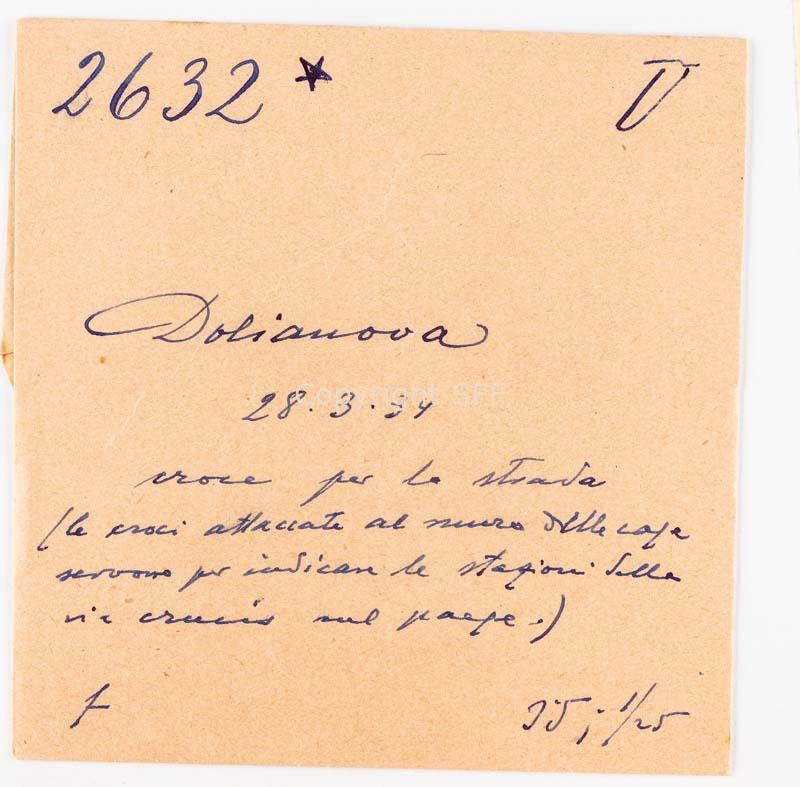 2632 * V
Dolianova
28.3.34
Copyright SFF
croce per la strada
(le croci attaccate al muro delle case
servono per indicare le stazioni della
via crucis nel paese.)
f 35; 1/25